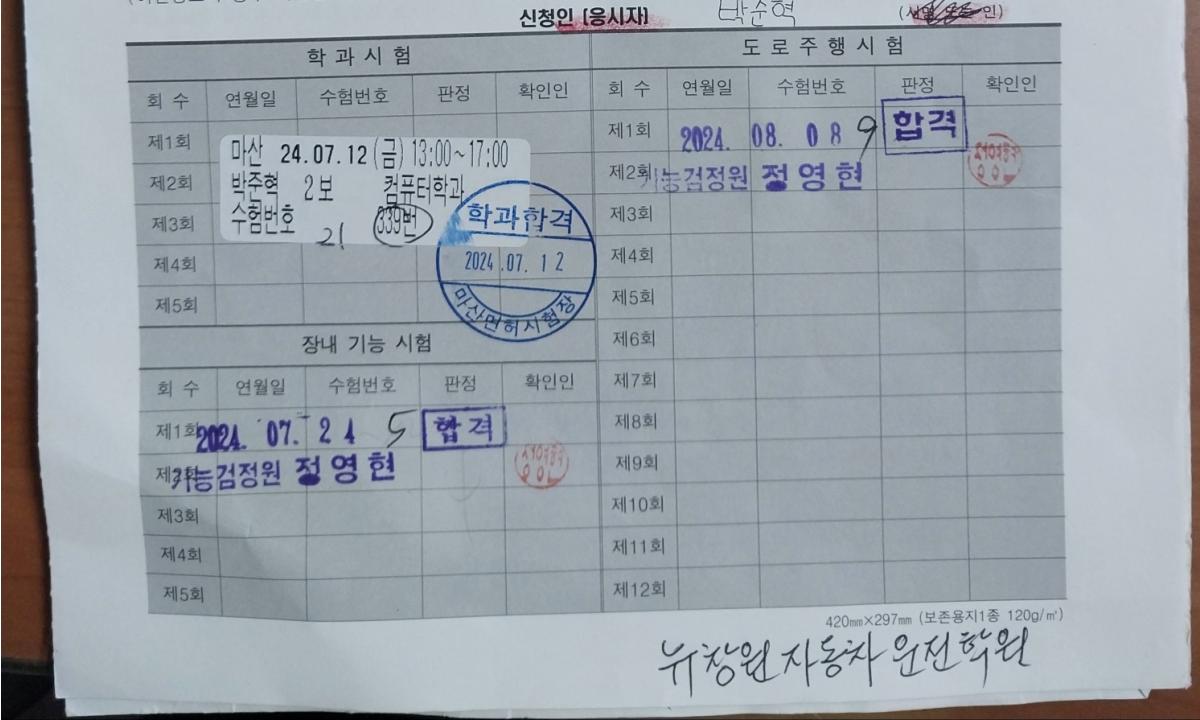 신청인 [응시자] 박준혁 인)
학 과 시 험
회 수 연월일 수험번호 판정 확인인
제1회
제2회
제3회
제4회
제5회
마산 24.07.12 (금) 13:00~17:00
박준혁 2보 컴퓨터학과
수험번호 21 339번
학과합격
2024.07.12
마산면허시험장
장내 기능 시험
회 수 연월일 수험번호 판정 확인인
제1회 2024. 07. 24 5 합격
제2회 기능검정원 정영현
제3회
제4회
제5회
도 로 주 행 시 험
회 수 연월일 수험번호 판정 확인인
제1회 2024. 08. 08 9 합격
제2회 기능검정원 정영현
제3회
제4회
제5회
제6회
제7회
제8회
제9회
제10회
제11회
제12회
420㎜×297㎜ (보존용지1종 120g/㎡)
뉴창원자동차운전학원